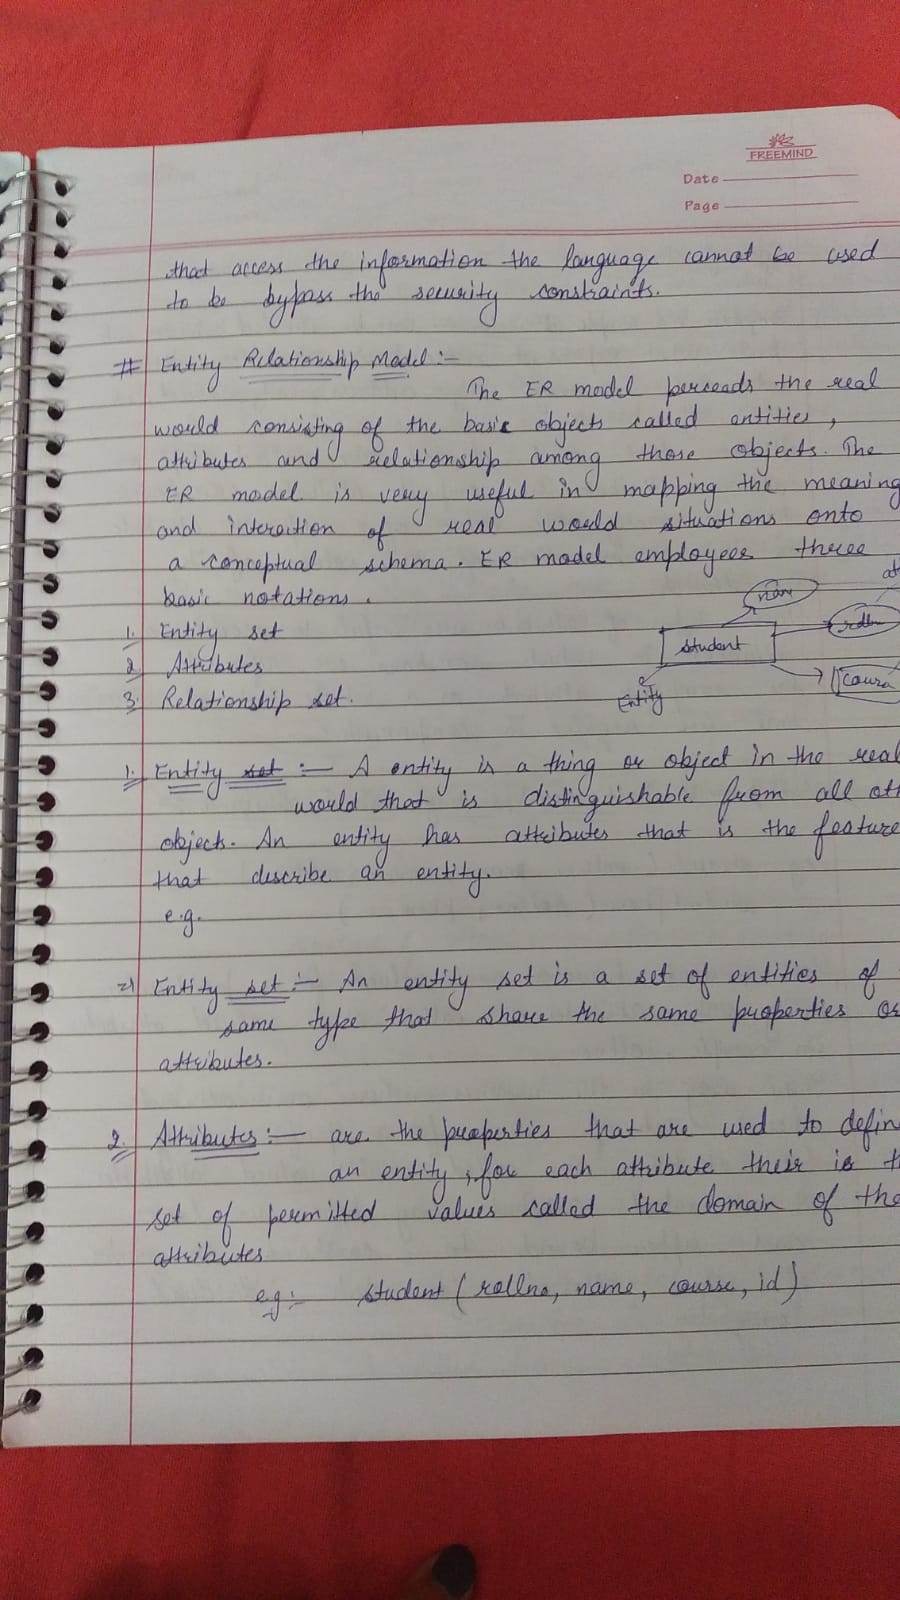 FREEMIND
Date
Page
that access the information the language cannot be used
to be bypass the security constraints.
# Entity Relationship Model :-
The ER model perceads the real
would consisting of the basic objects called entities,
attributes and relationship among those objects. The
ER model is very useful in mapping the meaning
and interaction of real would situations onto
a conceptual schema. ER model employees three
basic notations.
1. Entity set
2. Attributes
3. Relationship set.
name
student
rollno
Entity
1. Entity set :- A entity is a thing or object in the real
would that is distinguishable from all
object. An entity has attributes that is the feature
that describe an entity.
e.g.
=> Entity set :- An entity set is a set of entities of
same type that share the same properties or
attributes.
2. Attributes :- are the properties that are used to defin
an entity, for each attribute their is
set of permitted values called the domain of the
attributes
eg:- student (rollno, name, course, id)